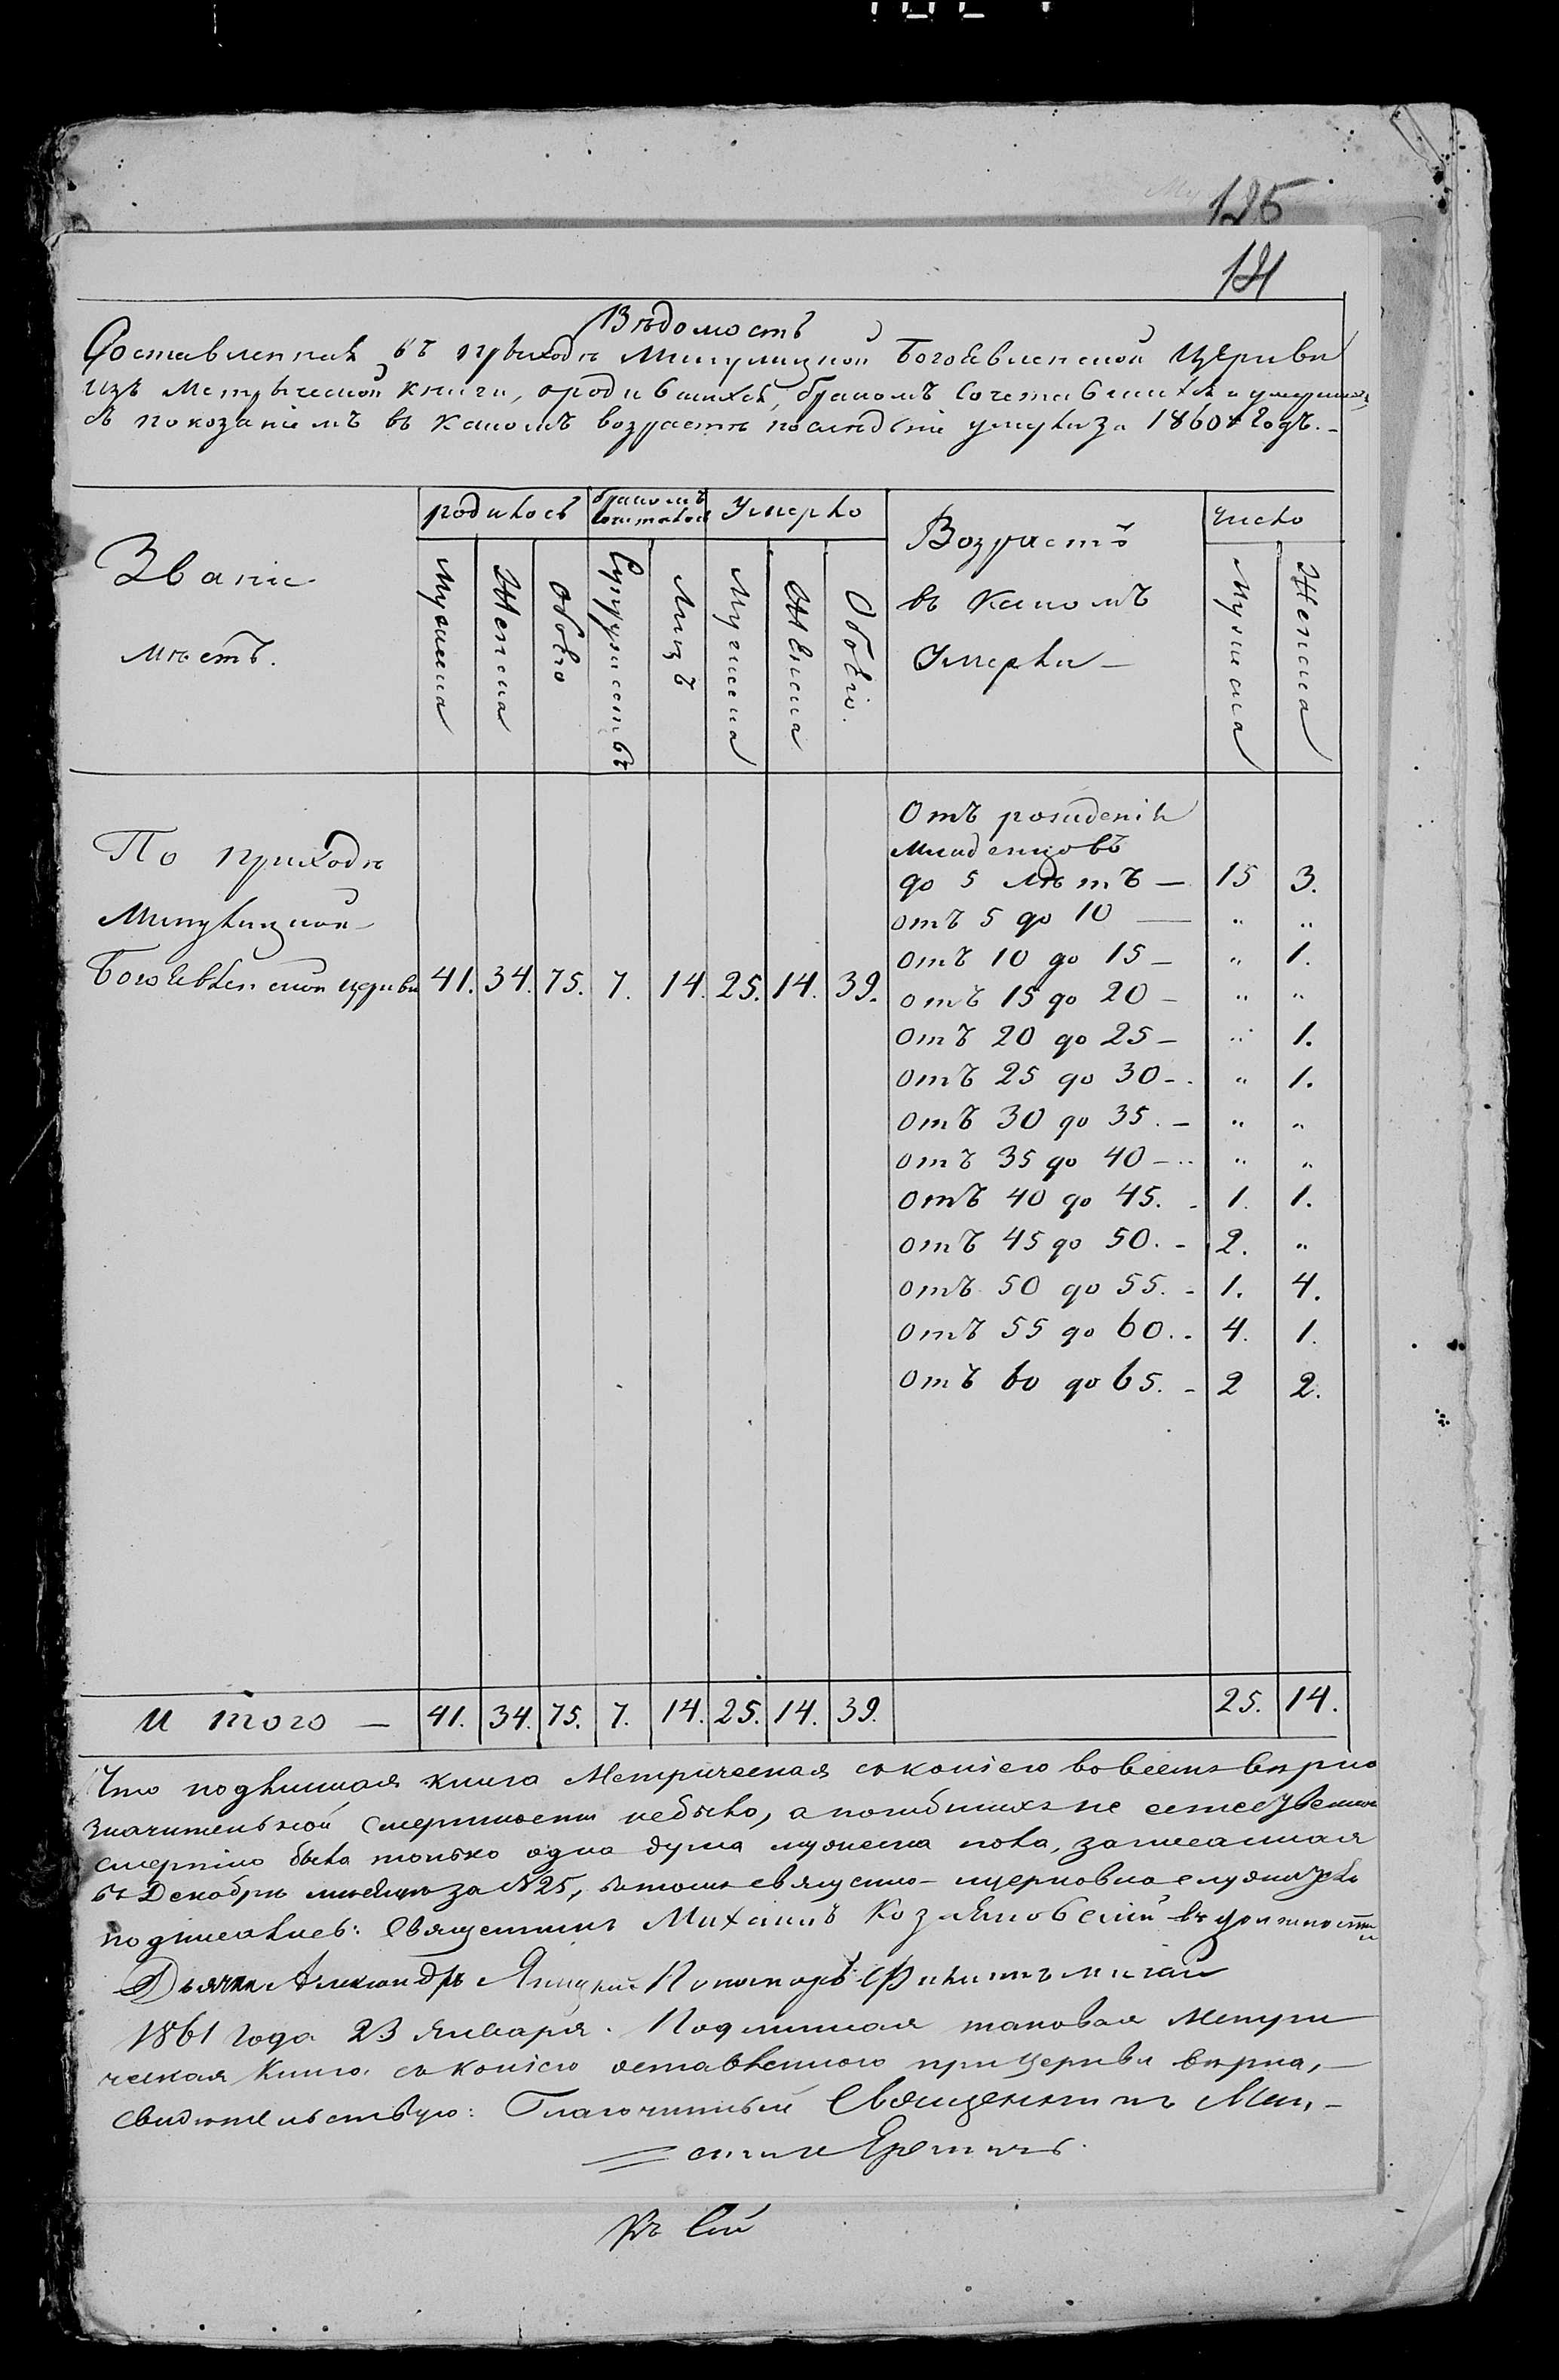 125
121
Вѣдомость
Составленная въ приходѣ Минулицкой Богоявленской Церкви
изъ Метрической книги, о родившихся, бракомъ сочетавшихся и умершихъ
съ показаніемъ въ какомъ возрастѣ послѣдніе умерли за 1860й Годъ. —
Званіе мѣстъ.
родилось
бракомъ сочеталось
Умерло
Возрастъ въ какомъ Умерли —
Число
Мужеска
Женска
Обоего
Супружествъ
Лицъ
Мужеска
Женска
Обоего.
Мужеска
Женска
Отъ рожденія
младенцовъ
до 5 лѣтъ — 15 3.
отъ 5 до 10 — „ „
отъ 10 до 15 — „ 1.
По приходѣ
Минулицкой
Богоявленской церкви 41. 34. 75. 7. 14. 25. 14. 39.
отъ 15 до 20 — „ „
отъ 20 до 25 — „ 1.
отъ 25 до 30 — „ 1.
отъ 30 до 35. — „ „
отъ 35 до 40 — „ „
отъ 40 до 45. - 1. 1.
отъ 45 до 50. - 2. „
отъ 50 до 55. - 1. 4.
отъ 55 до 60. - 4. 1.
отъ 60 до 65. - 2 2.
И того — 41. 34. 75. 7. 14. 25. 14. 39. 25. 14.
Что подлинная книга Метрическая съ копіею во всемъ вѣрна
значительной смертности не было, а погибшихъ не естественною
смертію была только одна душа мужеска пола, записанная
въ Декабрѣ мѣсяцѣ за №25, въ томъ священно-церковнослужители
подписались: Священникъ Михаилъ Козляковскій въ должности
Дьячка Александръ Яницкій Пономарь Филиппъ
1861 года 23 Января. Подлинная таковая Метри
ческая Книга съ копіею оставленною при Церкви вѣрна, —
Свидѣтельствую: Благочинный Священникъ